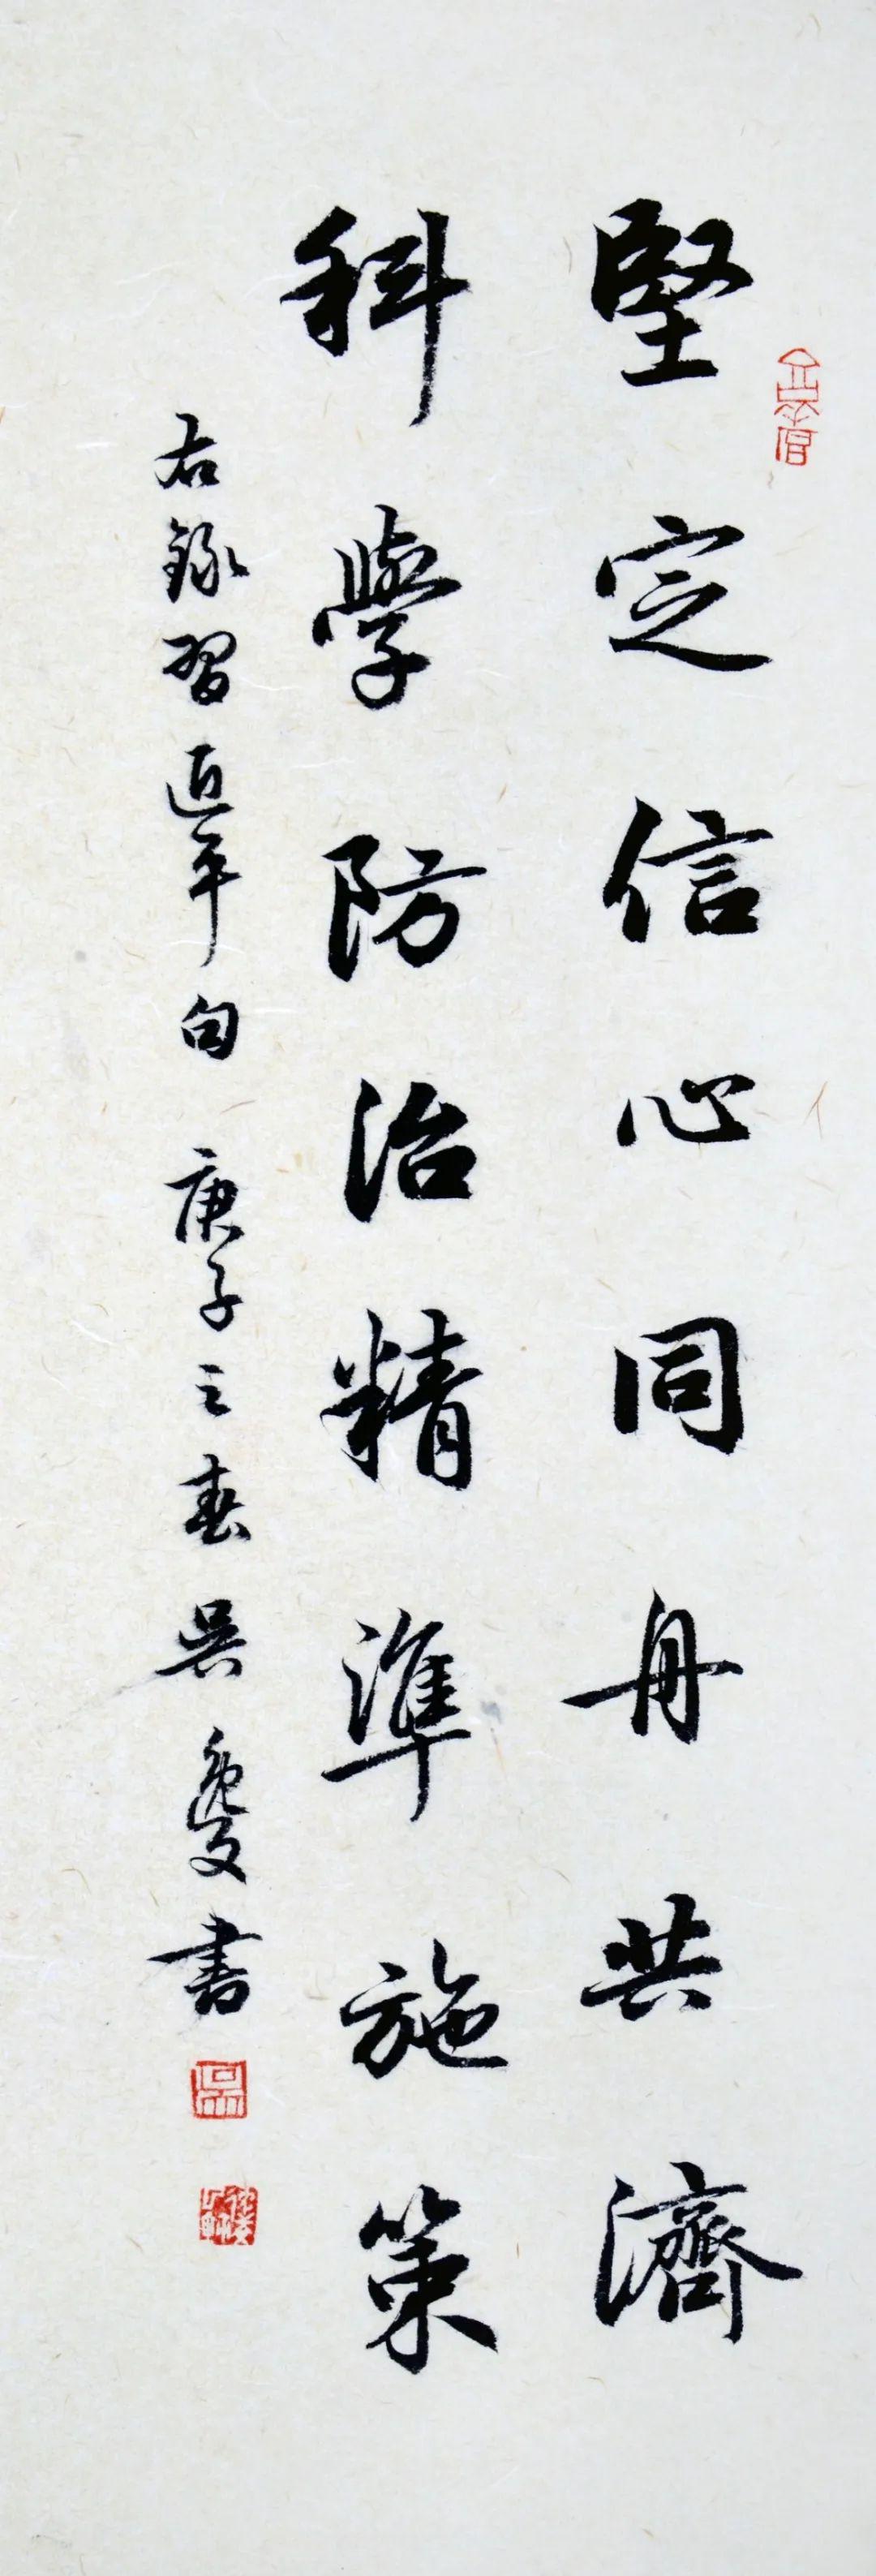 堅定信心同舟共濟
科學防治精準施策
右錄習近平句 庚子之春 吳 書